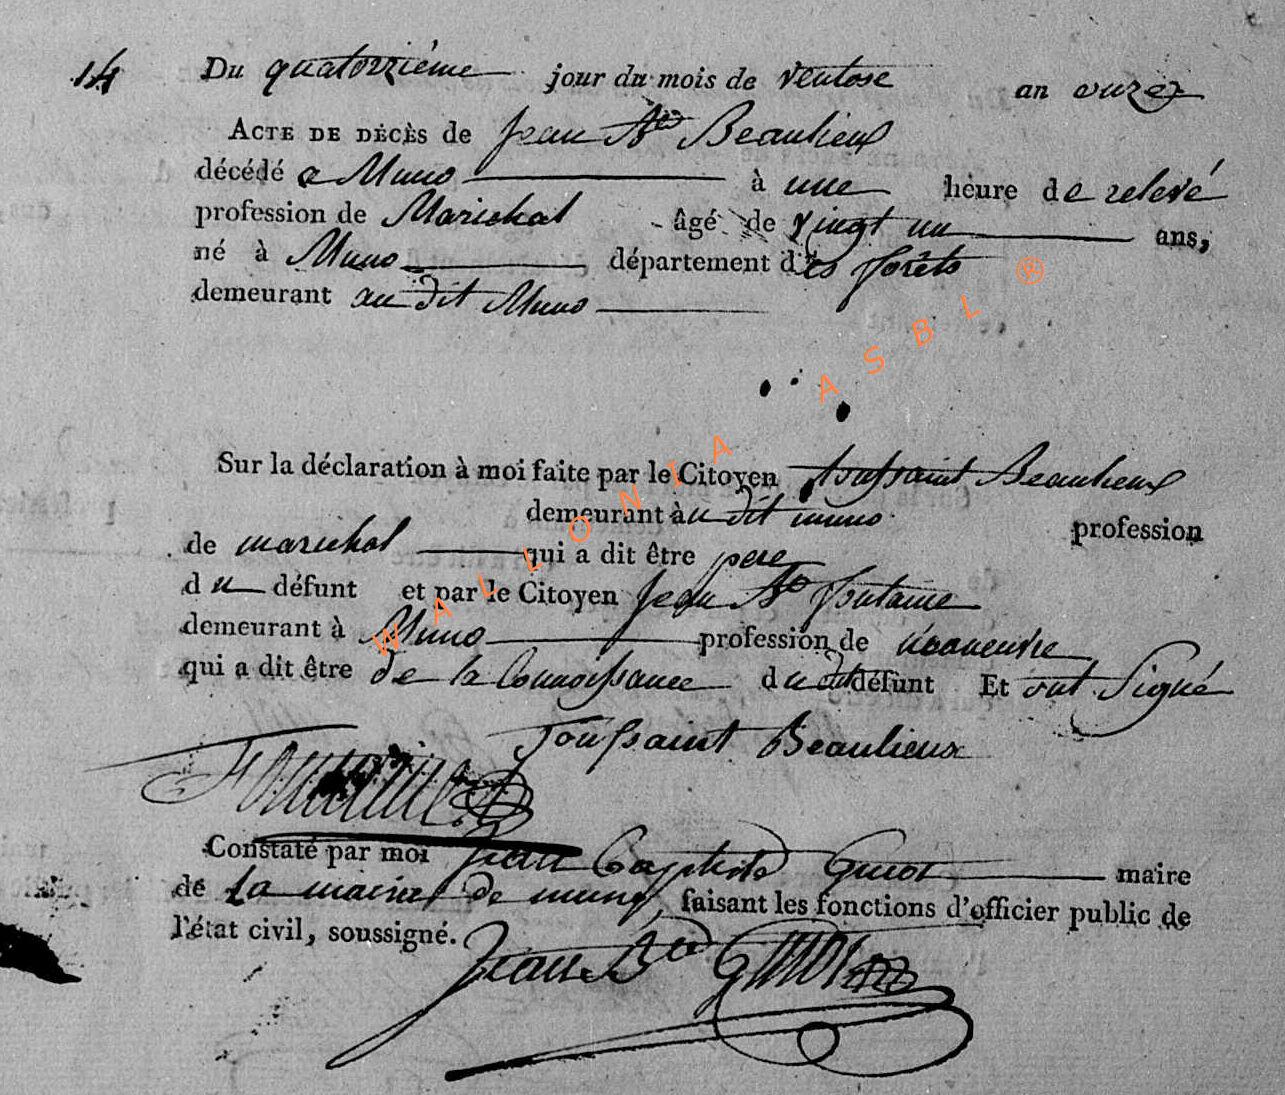 14 Du quatorzième jour du mois de ventose an onze
ACTE DE DÉCÈS de Jean Bte Beaulieux
décédé a Muno à une heure de relevé
profession de Marichal âgé de vingt un ans,
né à Muno département des forêts
demeurant audit Muno
Sur la déclaration à moi faite par le Citoyen toussaint Beaulieux
demeurant àudit muno profession
de marichal qui a dit être pere
du défunt et par le Citoyen Jean Bte fontaine
demeurant à Muno profession de
qui a dit être de la Connoissance du dit défunt Et ont Signé
Toussaint Beaulieux
Fontaine
Constaté par moi Jean Baptiste Guiot maire
de la mairie de muno, faisant les fonctions d'officier public de
l'état civil, soussigné.
Jean Bte Guiot
WALLONIA ASBL ®